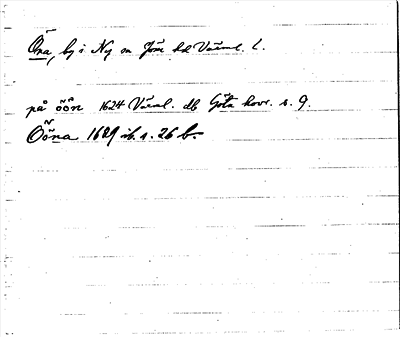 Öna, by i Ny sn Jöss hd Värml. l.
på öön 1624 Värml. db Göta hovr. s. 9.
Ööna 1629 ib. s. 26 b.